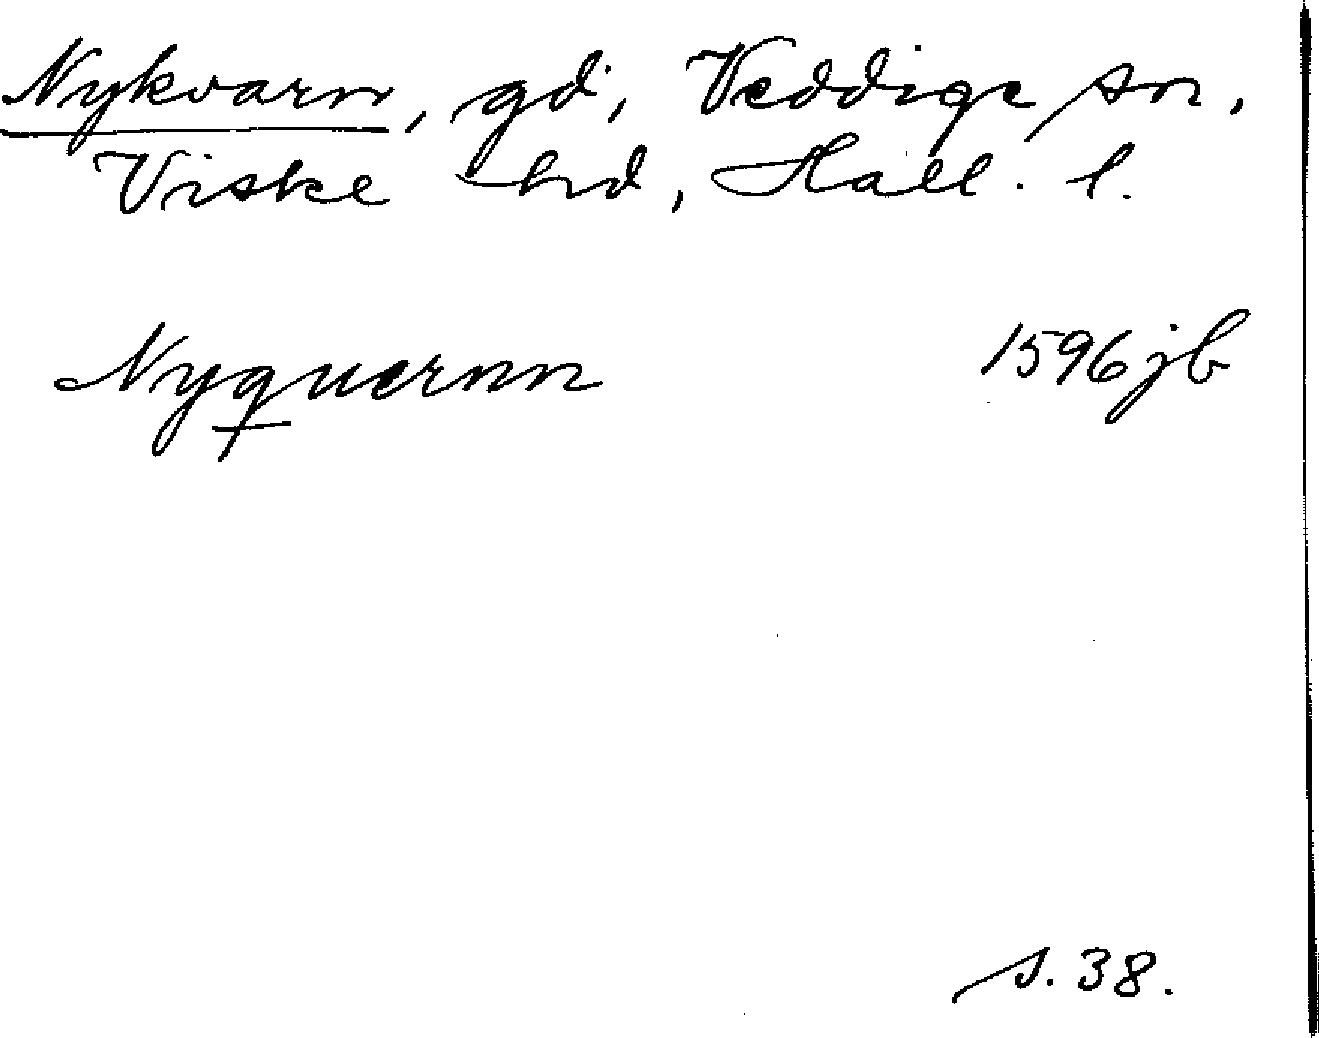 Nykvarn, gd, Veddige sn,
Viske hd, Hall. l.
Nyquernn 1596 jb
s. 38.